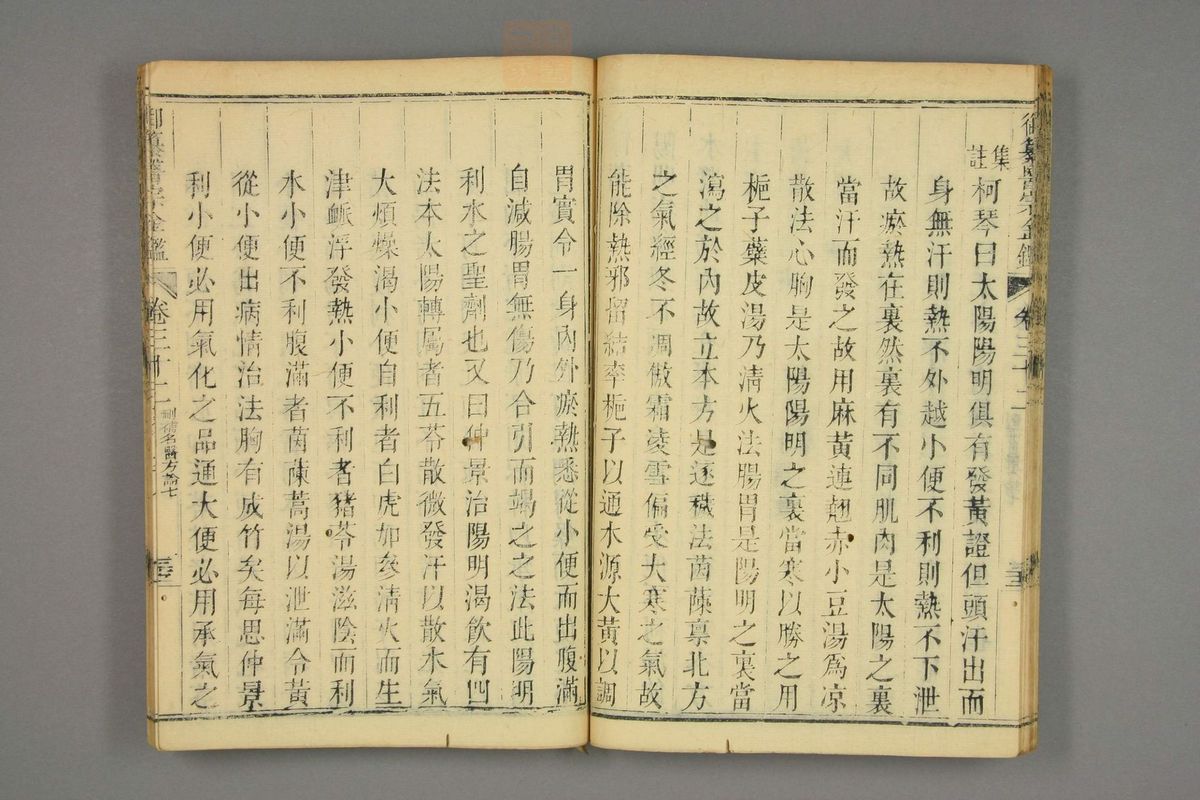 集註柯琴曰太陽陽明俱有發黃證但頭汗出而
身無汗則熱不外越小便不利則熱不下泄
故瘀熱在裏然裏有不同肌肉是太陽之裏
當汗而發之故用麻黃連翹赤小豆湯爲凉
散法心胸是太陽陽明之裏當寒以勝之用
梔子蘗皮湯乃清火法腸胃是陽明之裏當
瀉之於內故立本方是逐穢法茵蔯禀北方
之氣經冬不凋傲霜凌雪偏受大寒之氣故
能除熱邪留結率梔子以通水源大黃以調
胃實令一身內外瘀熱悉從小便而出腹滿
自減腸胃無傷乃合引而竭之之法此陽明
利水之聖劑也又曰仲景治陽明渴飲有四
法本太陽轉屬者五苓散微發汗以散水氣
大煩燥渴小便自利者白虎加參清火而生
津脈浮發熱小便不利者猪苓湯滋陰而利
水小便不利腹滿者茵蔯蒿湯以泄滿令黃
從小便出病情治法胸有成竹矣每思仲景
利小便必用氣化之品通大便必用承氣之
御纂醫宗金鑑
卷三十二
刪補名醫方論七